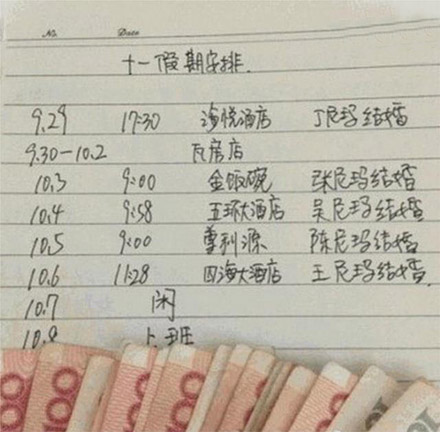 No. Date
十一假期安排.
9.29 17:30 海悦酒店 丁尼玛结婚
9.30-10.2 瓦房店
10.3 9:00 金饭碗 张尼玛结婚
10.4 9:58 五环大酒店 吴尼玛结婚
10.5 9:00 鲁利源 陈尼玛结婚
10.6 11:28 四海大酒店 王尼玛结婚.
10.7 闲
10.8 上班
100 100 100 100